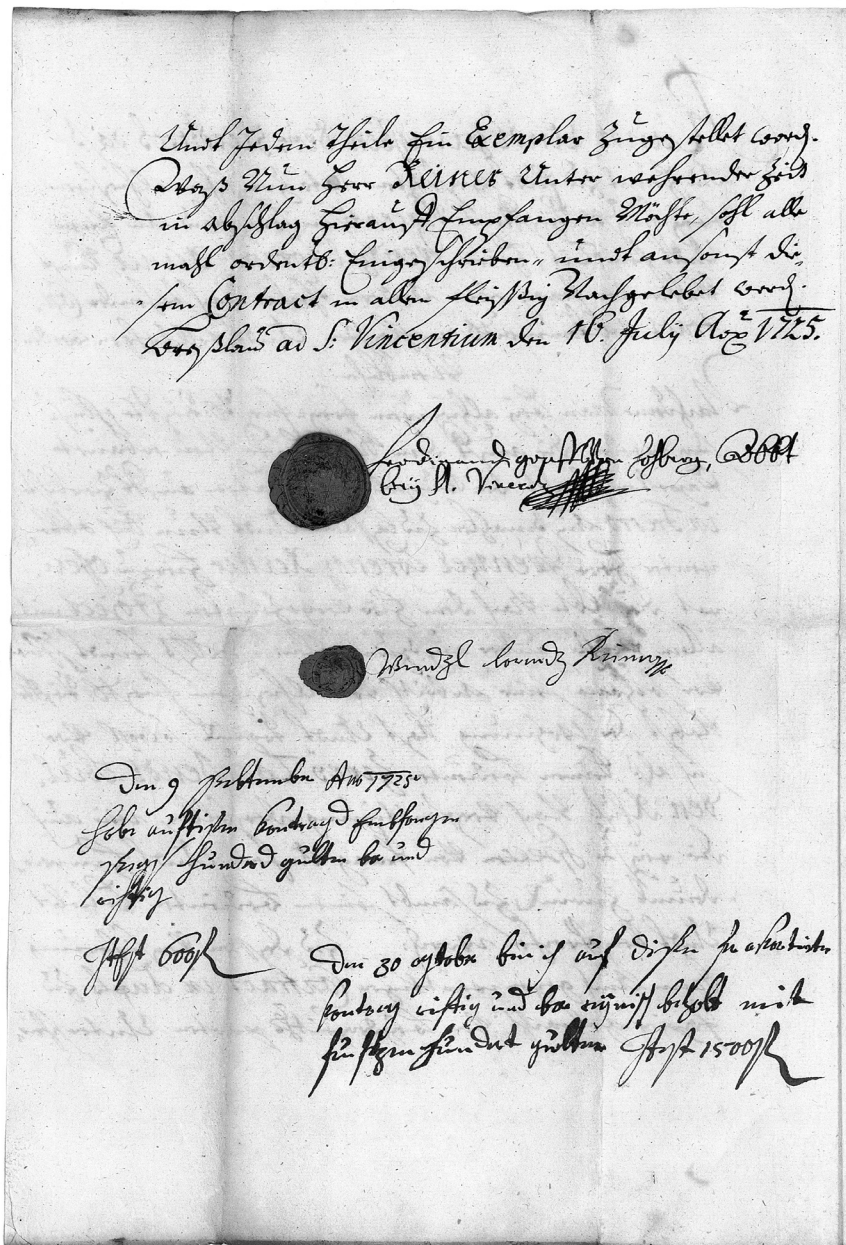 Undt Jedem Theile Ein Exemplar Zugestellet werd.
Waß Nun Herr Reiner Unter wehrender Zeit
in abschlag Hierauff Empfangen Möchte, sohl alle
mahl ordentl: Eingeschrieben, undt ansonst die-
sem Contract in allen fleißig Nachgelebet werd.
Breßlau ad S: Vincentium den 16. July Aõ 1725.
Ferdinand Hochberg, Abbt
bey St. Vincenz
Wendzl Lorendz
Den 9 Sebtember Ano 1725
habe auf disen Kontragd Embfangen
Sexs hunderd gulten bar und
richtig
Ist 600 fl
Den 30 october bin ich auf disen
Kontrag richtig und bar bezalt mit
funfzen hundert gulten Ist 1500 fl